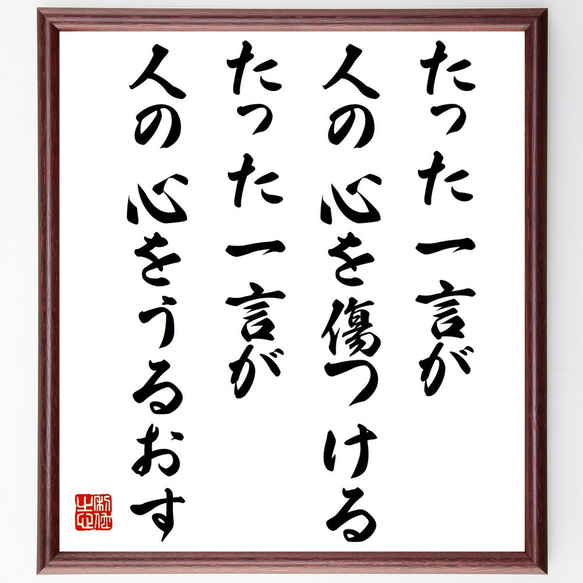 たった一言が
人の心を傷つける
たった一言が
人の心をうるおす